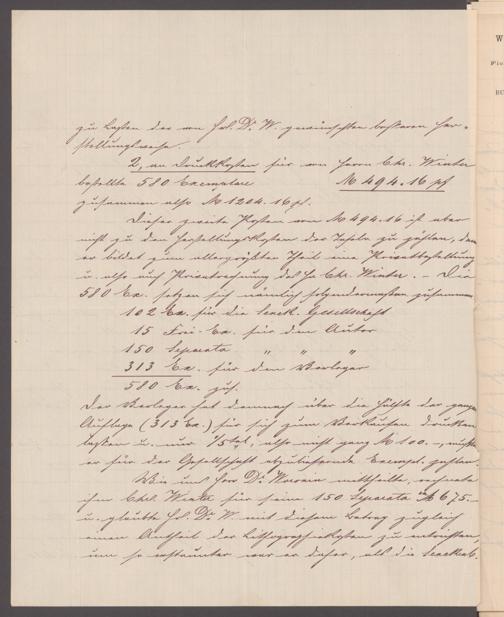 zu Lasten des von Hrl. Dr. W. gewünschten besseren Her-
stellungsweise.
2, an Druckkosten für von Herrn Chr. Winter
bestellte 580 Exemplare M 494.16 pf
zusammen also M 1204.16 pf.
Dieser zweite Posten von M 494.16 ist aber
nicht zu den Herstellungskosten der Tafeln zu zählen, denn
er bildet zum allergrößten Theil eine Privatbestellung
u. also auch Privatrechnung des H. Chr. Winter. – Die
580 Ex. setzen sich nämlich folgendermaßen zusammen
102 Ex. für die Senck. Gesellschaft
15 Frei-Ex. für den Autor
150 Separata " " "
313 Ex. für den Verleger
580 Ex. zus.
Der Verleger hat demnach über die Hälfte der ganzen
Auflage (313 Ex.) für sich zum Verkaufen drucken
lassen u. nur also nicht ganz M 100.–, müßte
er für der Gesellschaft abzuliefernde Exempl. zahlen.
Wie uns Herr Dr. mittheilte, rechnete
ihm Chr. Winter für seine 150 Separata M 675.–
u. glaubte H. Dr. W. mit diesem Betrag zugleich
einen Antheil der Lithographiekosten zu entrichten,
um so erstaunter war er daher, als die Senckenb.
W